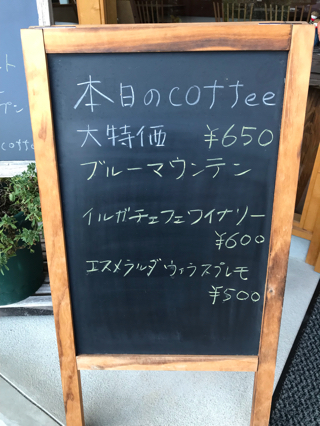 本日のcoffee
大特価 ¥650
ブルーマウンテン
イルガチェフェワイナリー
¥600
エスメラルダ ヴィラスプレモ
¥500